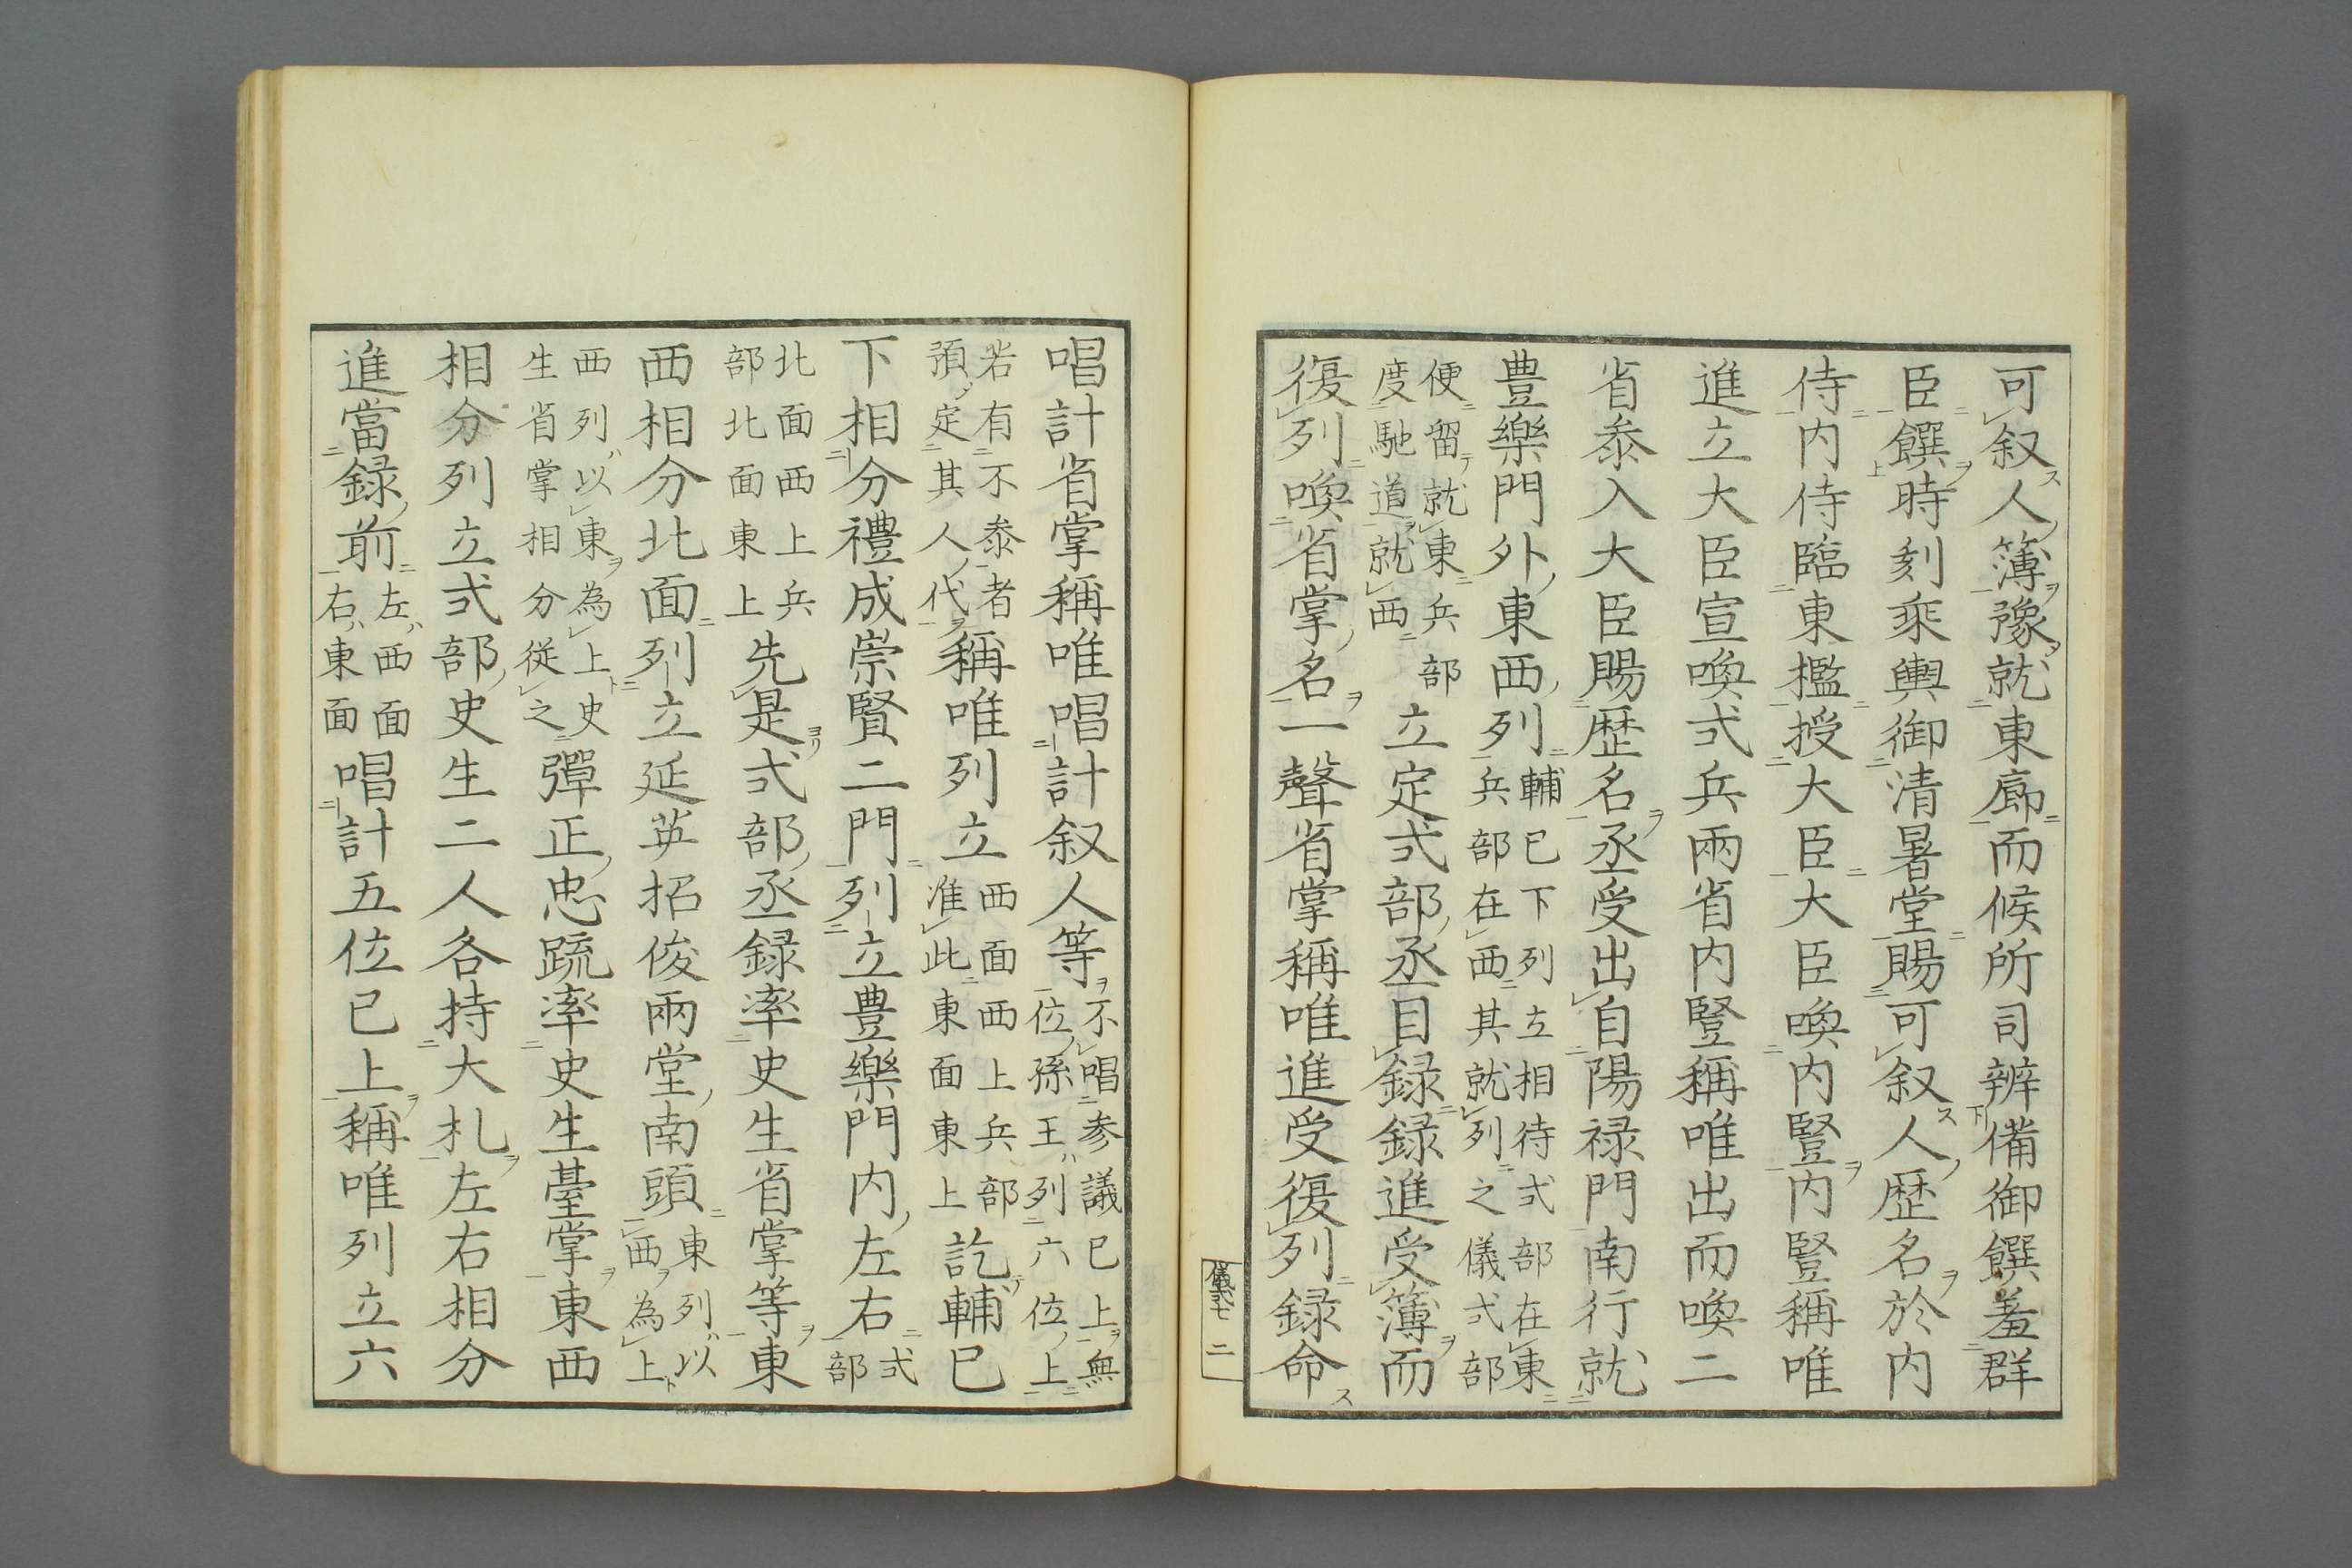 可叙人簿豫就東廊而候所司辨備御饌羞群
臣饌時刻乘輿御清暑堂賜可叙人歴名於内
侍内侍臨東檻授大臣大臣喚内豎内豎稱唯
進立大臣宣喚式兵兩省内豎稱唯出而喚二
省叅入大臣賜歴名丞受出自陽禄門南行就
豊樂門外東西列輔已下列立相待式部在東
兵部在西其就列之儀式部
便留就東兵部
度馳道就西立定式部丞目録録進受簿而
復列喚省掌名一聲省掌稱唯進受復列録命
儀式七 二
唱計省掌稱唯唱計叙人等不唱参議已上無
位孫王列六位上
若有不叅者
預定其人代稱唯列立西面西上兵部
准此東面東上訖輔已
下相分禮成崇賢二門列立豊樂門内左右式
部
北面西上兵
部北面東上先是式部丞録率史生省掌等東
西相分北面列立延英招俊兩堂南頭東列以
西為上
西列以東為上史
生省掌相分従之彈正忠䟽率史生臺掌東西
相分列立式部史生二人各持大札左右相分
進當録前左西面
右東面唱計五位已上稱唯列立六